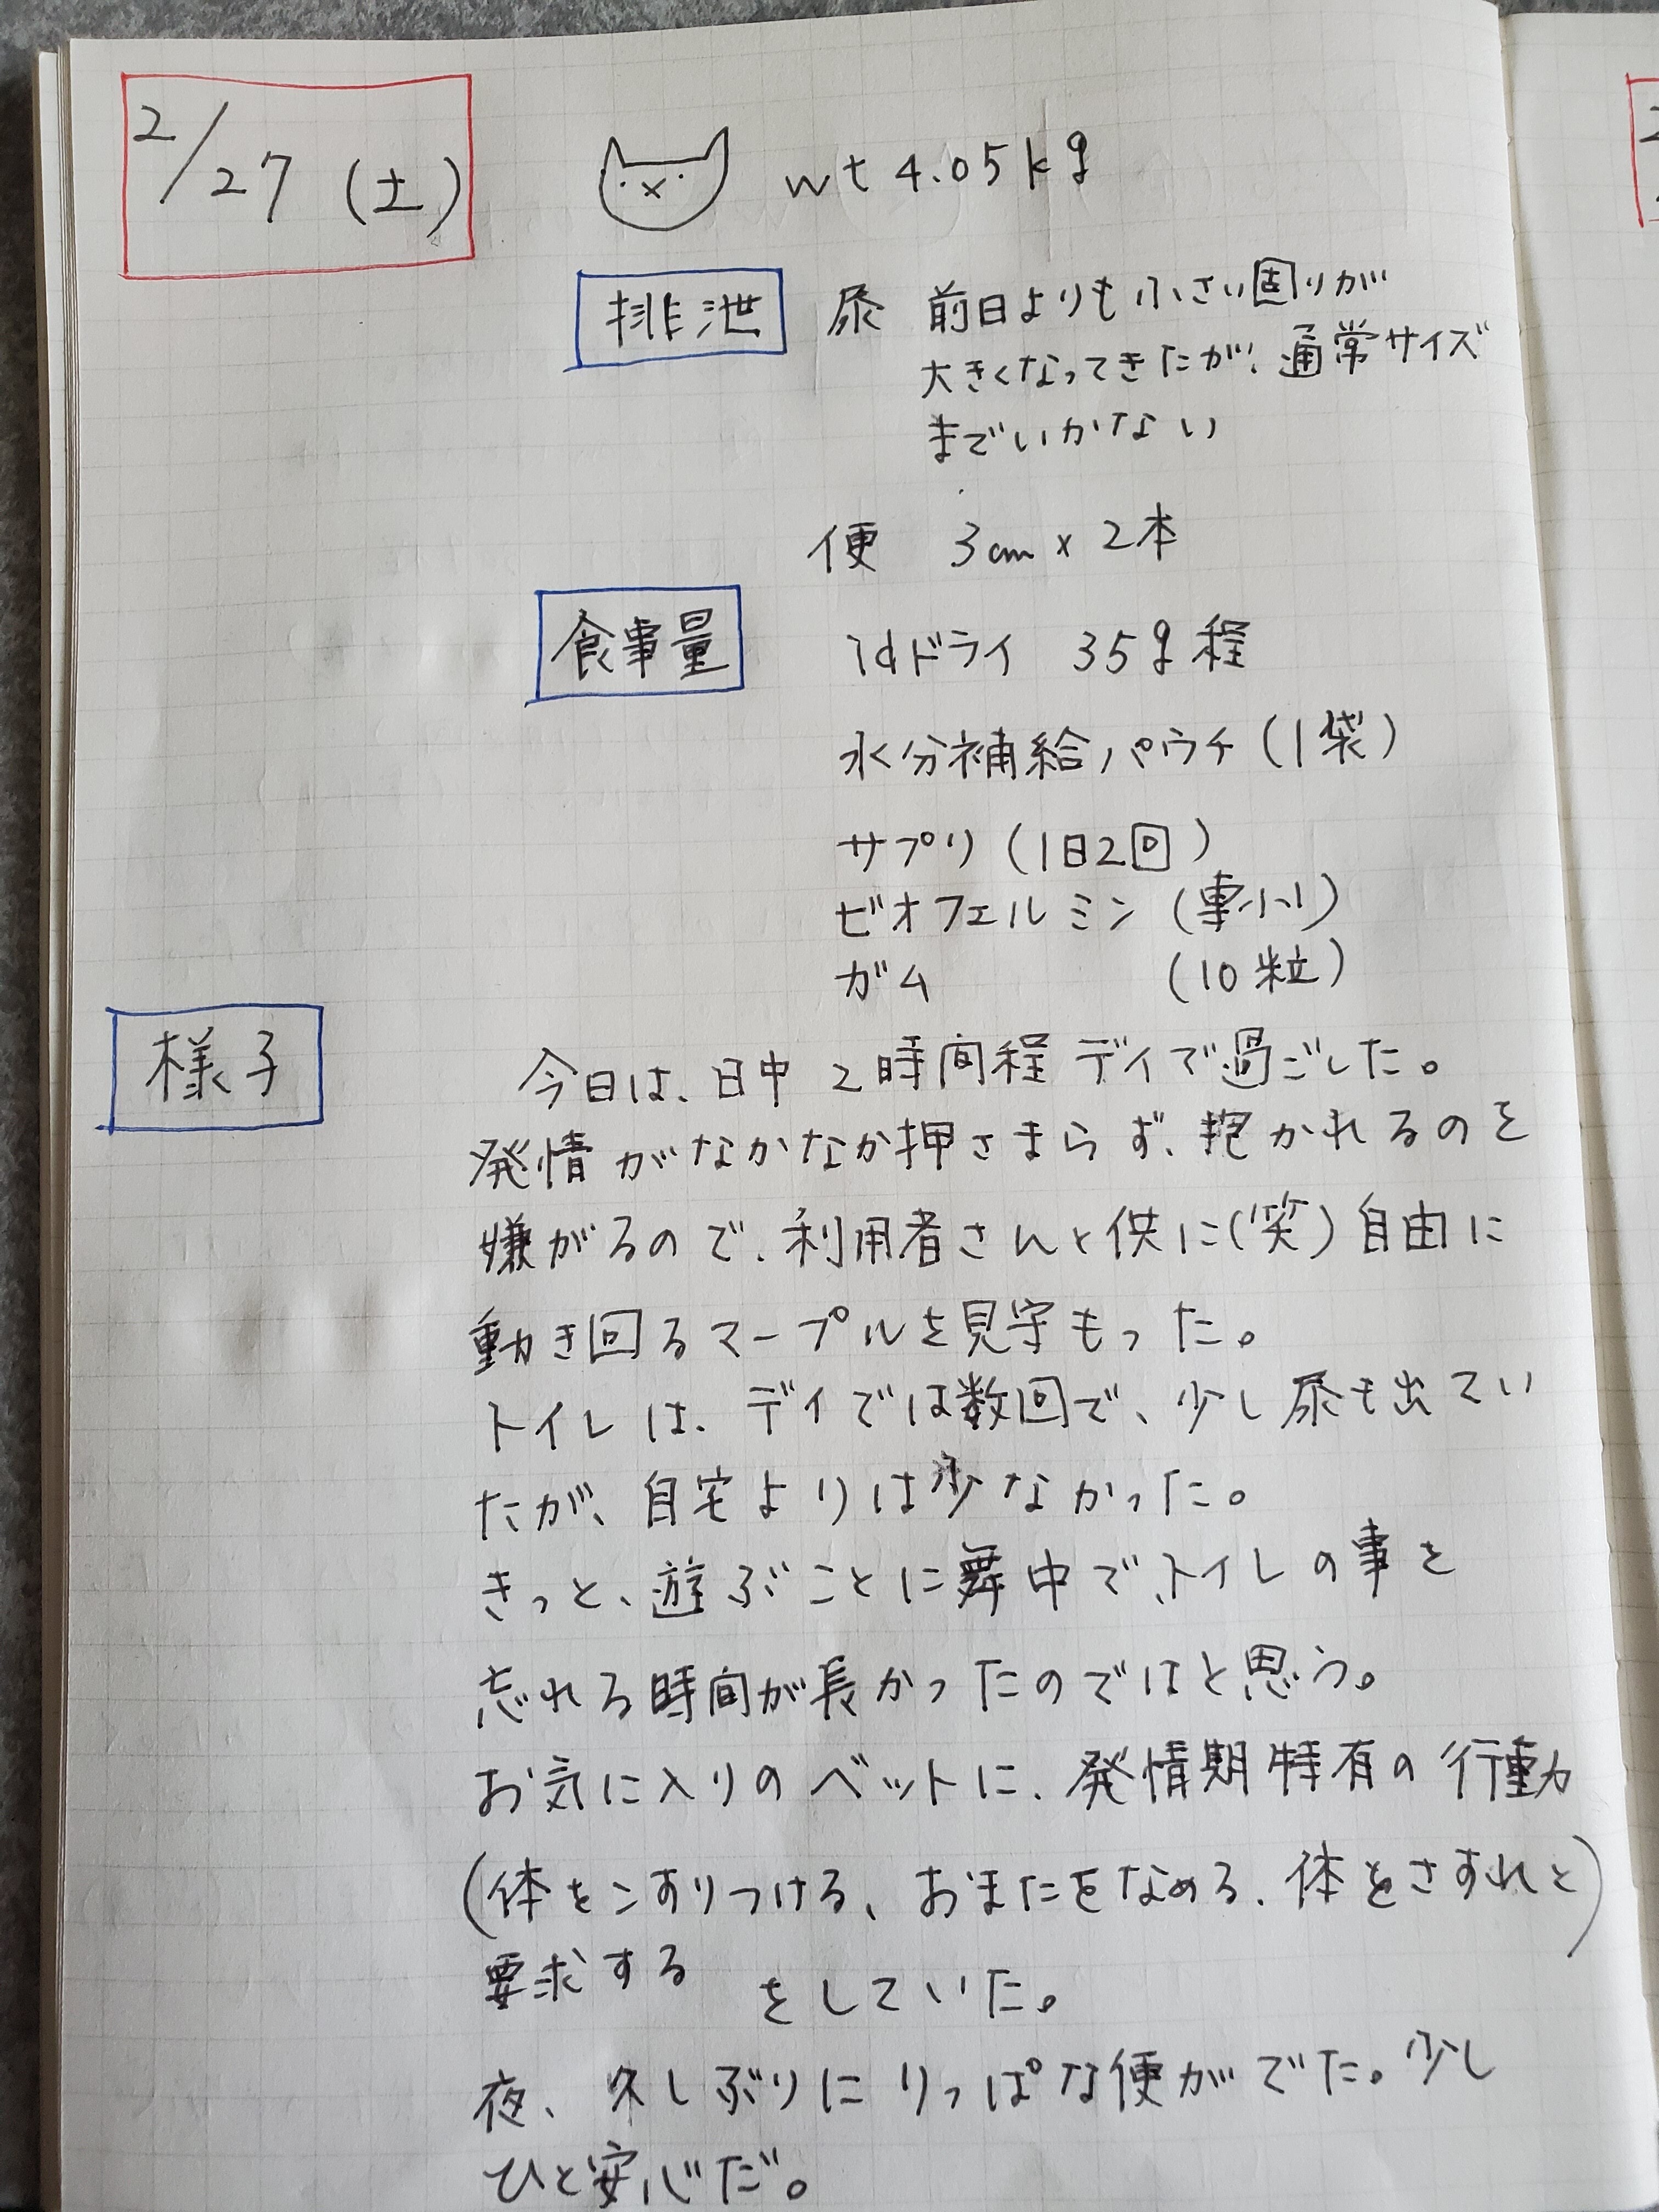 2/27 (土)
wt 4.05kg
排泄 尿 前日よりも小さい固りが
大きくなってきたが、通常サイズ
までいかない
便 3cm×2本
食事量 idドライ 35g程
水分補給パウチ(1袋)
サプリ(1日2回)
ビオフェルミン(耳小1)
ガム (10粒)
様子
今日は、日中2時間程デイで過ごした。
発情がなかなか押さまらず、抱かれるのを
嫌がるので、利用者さんと供に(笑)自由に
動き回るマープルを見守もった。
トイレは、デイでは数回で、少し尿も出てい
たが、自宅よりは少なかった。
きっと、遊ぶことに舞中で、トイレの事を
忘れる時間が長かったのではと思う。
お気に入りのベットに、発情期特有の行動
(体をこすりつける、おまたをなめる、体をさすれと)
要求する をしていた。
夜、久しぶりにりっぱな便がでた。少し
ひと安心だ。